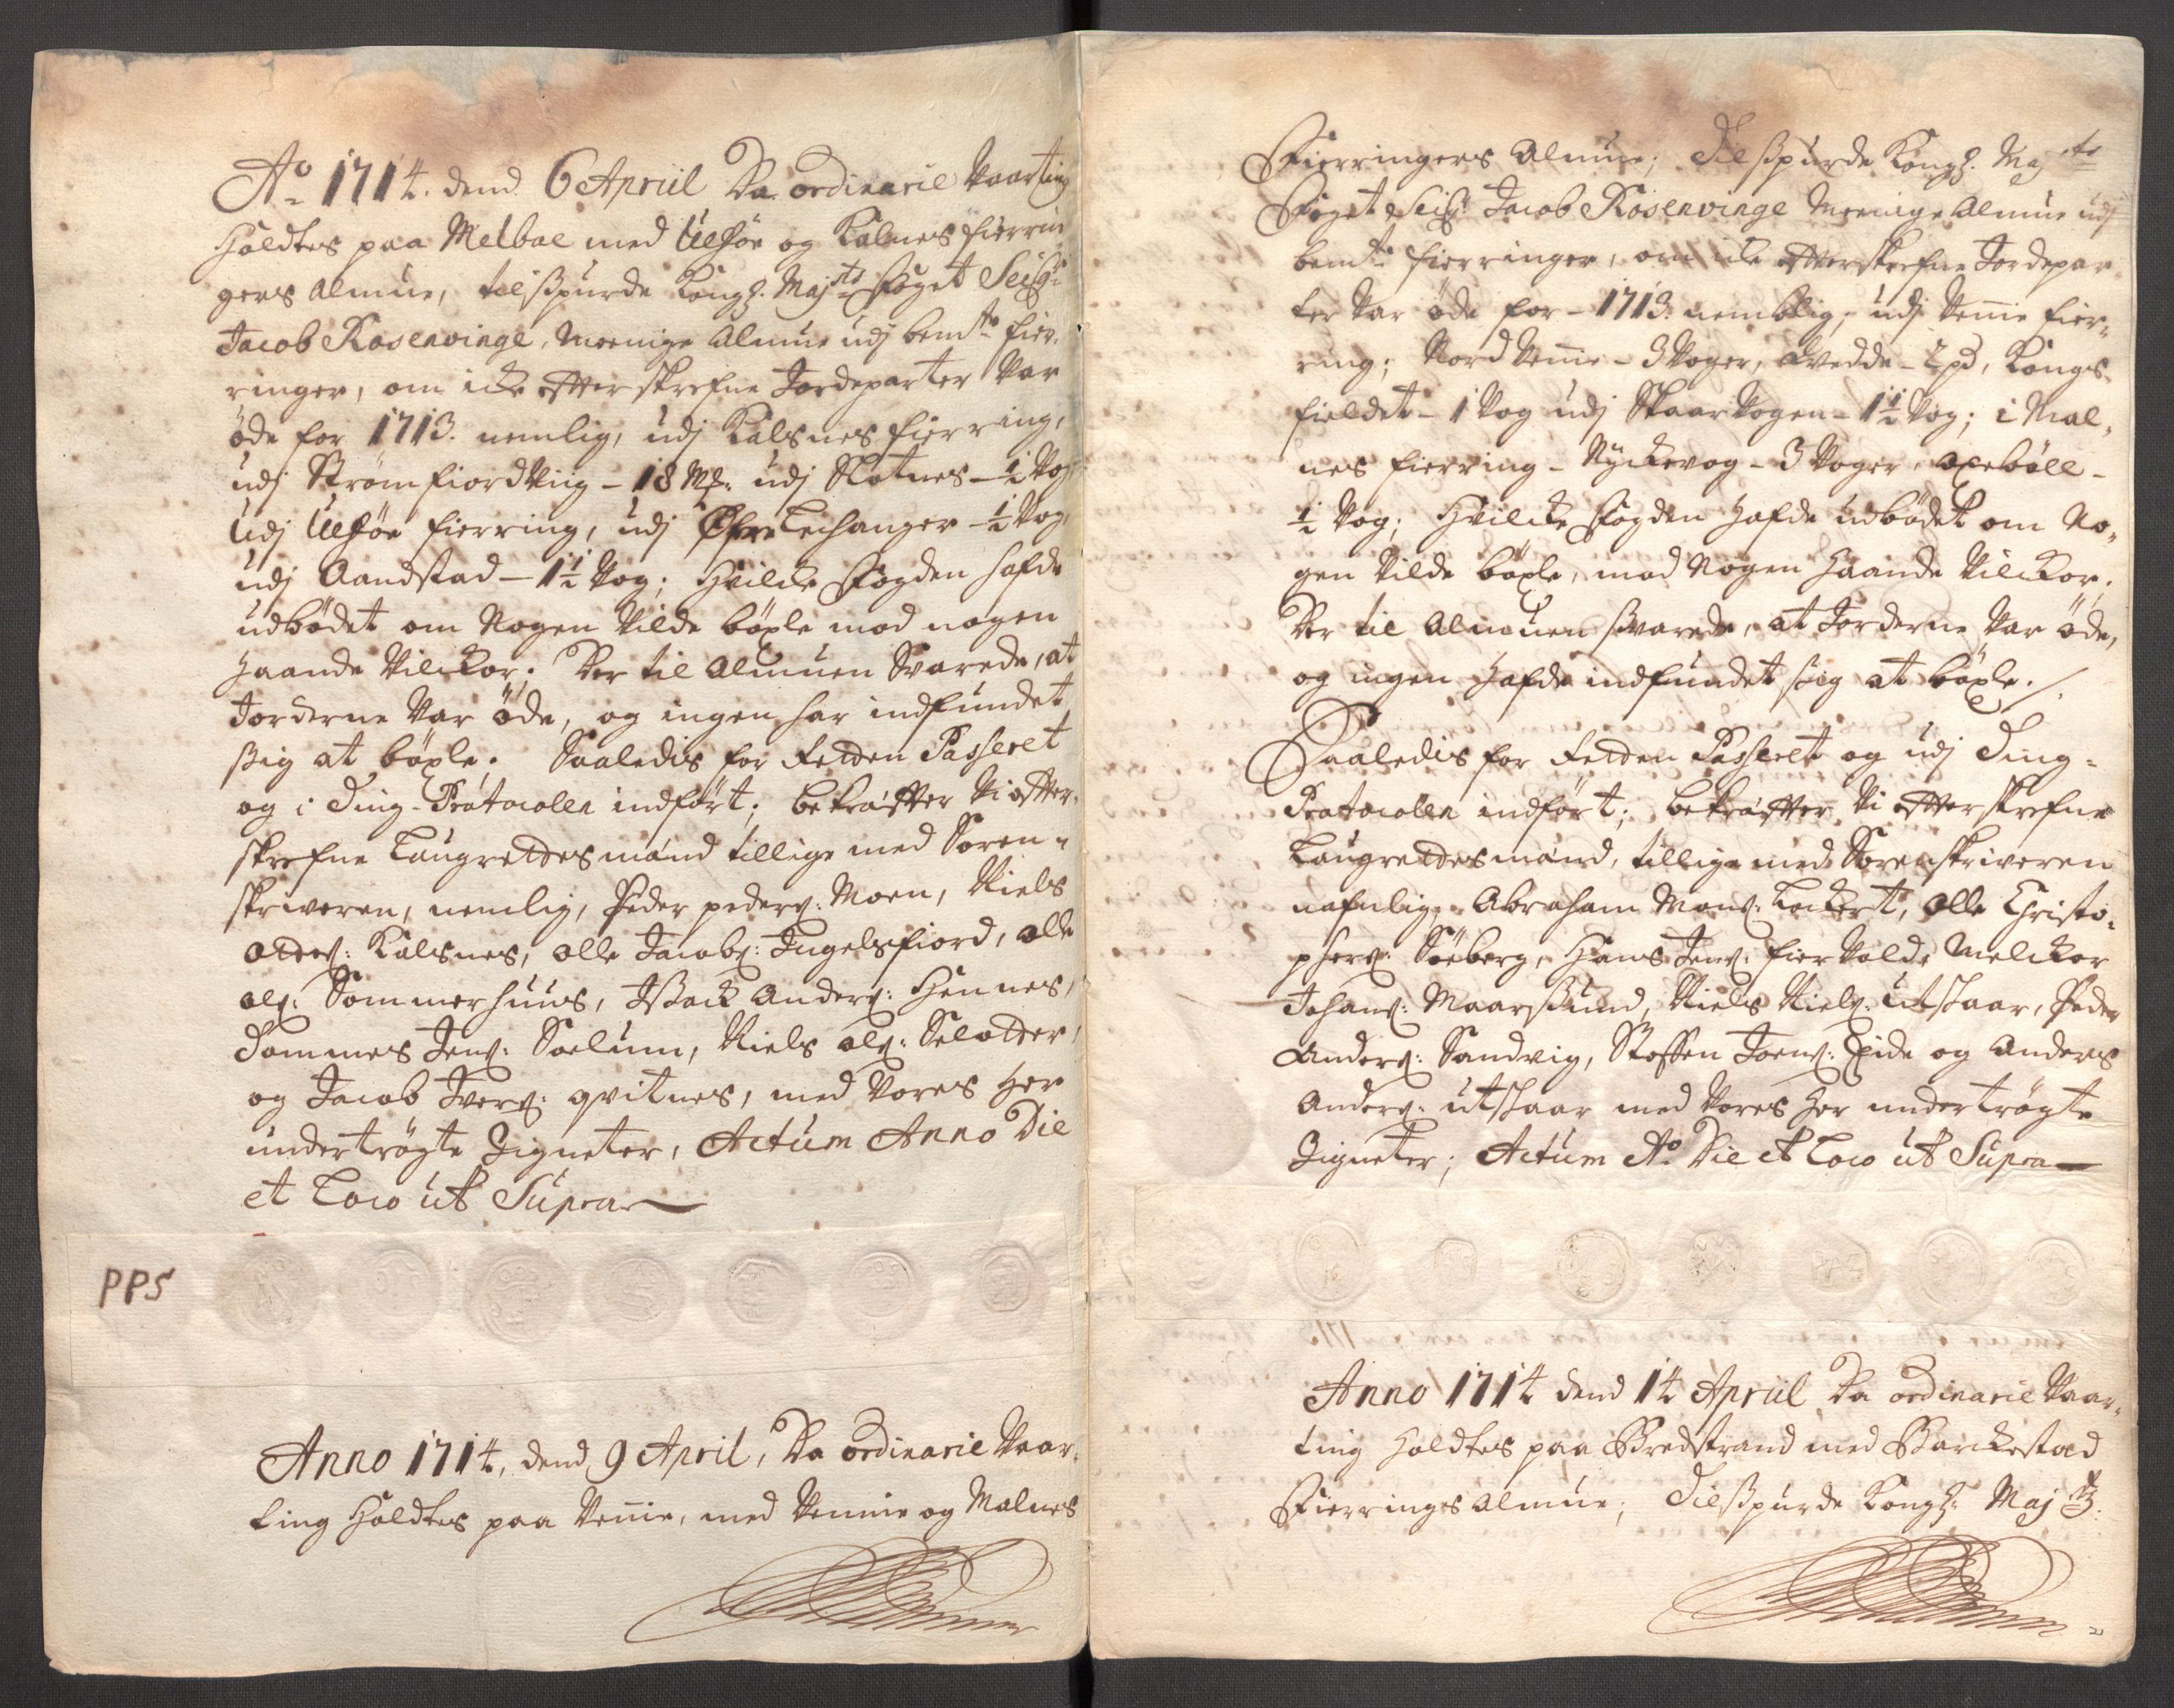 Ao 1714. dend 6 Apriil Da ordinarie Vaarting
Holdtes paa Melboe med Ulføe og Kalsnes fierrin
gers Almue, tilspurde Kongl. Majts Foget Seigr
Jacob Rosenvinge, Meenige Almue udj bemte fier,
ringer, om icke effterskrefne Jordeparter Var
øde for 1713. nemlig, udj Kalsnes fierring,
udj Strømfiordviig - 18 Mk. udj Slotnes - ½ Vog
Udj Ulføe fierring, udj Øfre Lechanger - ½ Vog,
udj Aandstad - 1½ Vog; Hvilcke Fogden hafde
udbødet om Nogen Vilde böxle mod nogen
haande Vilckor. Der til Almuen Svarede, at
Jorderne Var øde, og ingen har indfundet
sig at böxle. Saaledis for Retten Passeret
og i Ting-Protocollen indført; bekräffter Vi effter,
skrefne Laugrettes mænd tillige med Soren-
skriveren, nemlig, Peder peders: Moen, Niels
Otters: Kalsnes, Olle Jacobs: Ingelsfiord, Olle
Ols: Sommerhuus, Isack Anders: Hennes,
Tommes Jens: Soelum, Niels Ols: Slotter,
og Jacob Ivers: qvitnes, med Vores her
undertrögte Zigneter, Actum Anno Die
et Loco ut Supra
PPS
Anno 1714, dend 9 April, Da ordinarie Vaar,
ting Holdtes paa Vennie, med Vennie og Malnes
Fierringers Almue; Tilspurde Kongl. Majts
Foget Seigr. Jacob Rosenvinge Meenige Almue udj
bemte fierringer, om icke effterskrefne Jordepar,
ter Var øde for - 1713. nemblig, udj Vennie fier,
ring; Nord Vennie - 3 Voger, Tvedde - 2 pd, Kongs,
fieldet - 1 Vog udj Skaarvogen - 1½ Vog; i Mal,
nes fierring - Nyckevog - 3 Voger, Oxebøll -
½ Vog; Hvilcke Fogden hafde udbødet om No,
gen Vilde böxle, mod Nogen haande Vilckor.
Der til Almuen svarede, at Jorderne Var øde,
og ingen hafde indfundet sig at böxle. /.
Saaledis for Retten Passeret og udj Ting-
Protocollen indført; bekräffter Vi effterskrefne
Laugrettesmænd, tillige med Sorenskriveren
nafnlig, Abraham Mons: Lockert, Olle Christo,
phers: Söeberg, Hans Jens: fiervold, Melckor
Johans: Maarsund, Niels Niels: Utskaar, Peder
Anders: Sandvig, Stoffen Joens: Eide og Anders
Anders: utskaar med Vores her undertrögte
Zigneter; Actum Ao. Die et Loco ut Supra
Anno 1714 dend 14 Apriil Da ordinarie Vaar,
ting holdtes paa Bredstrand med Barckestad
Fierringes Almue; Tilspurde Kongl. Maj ts.